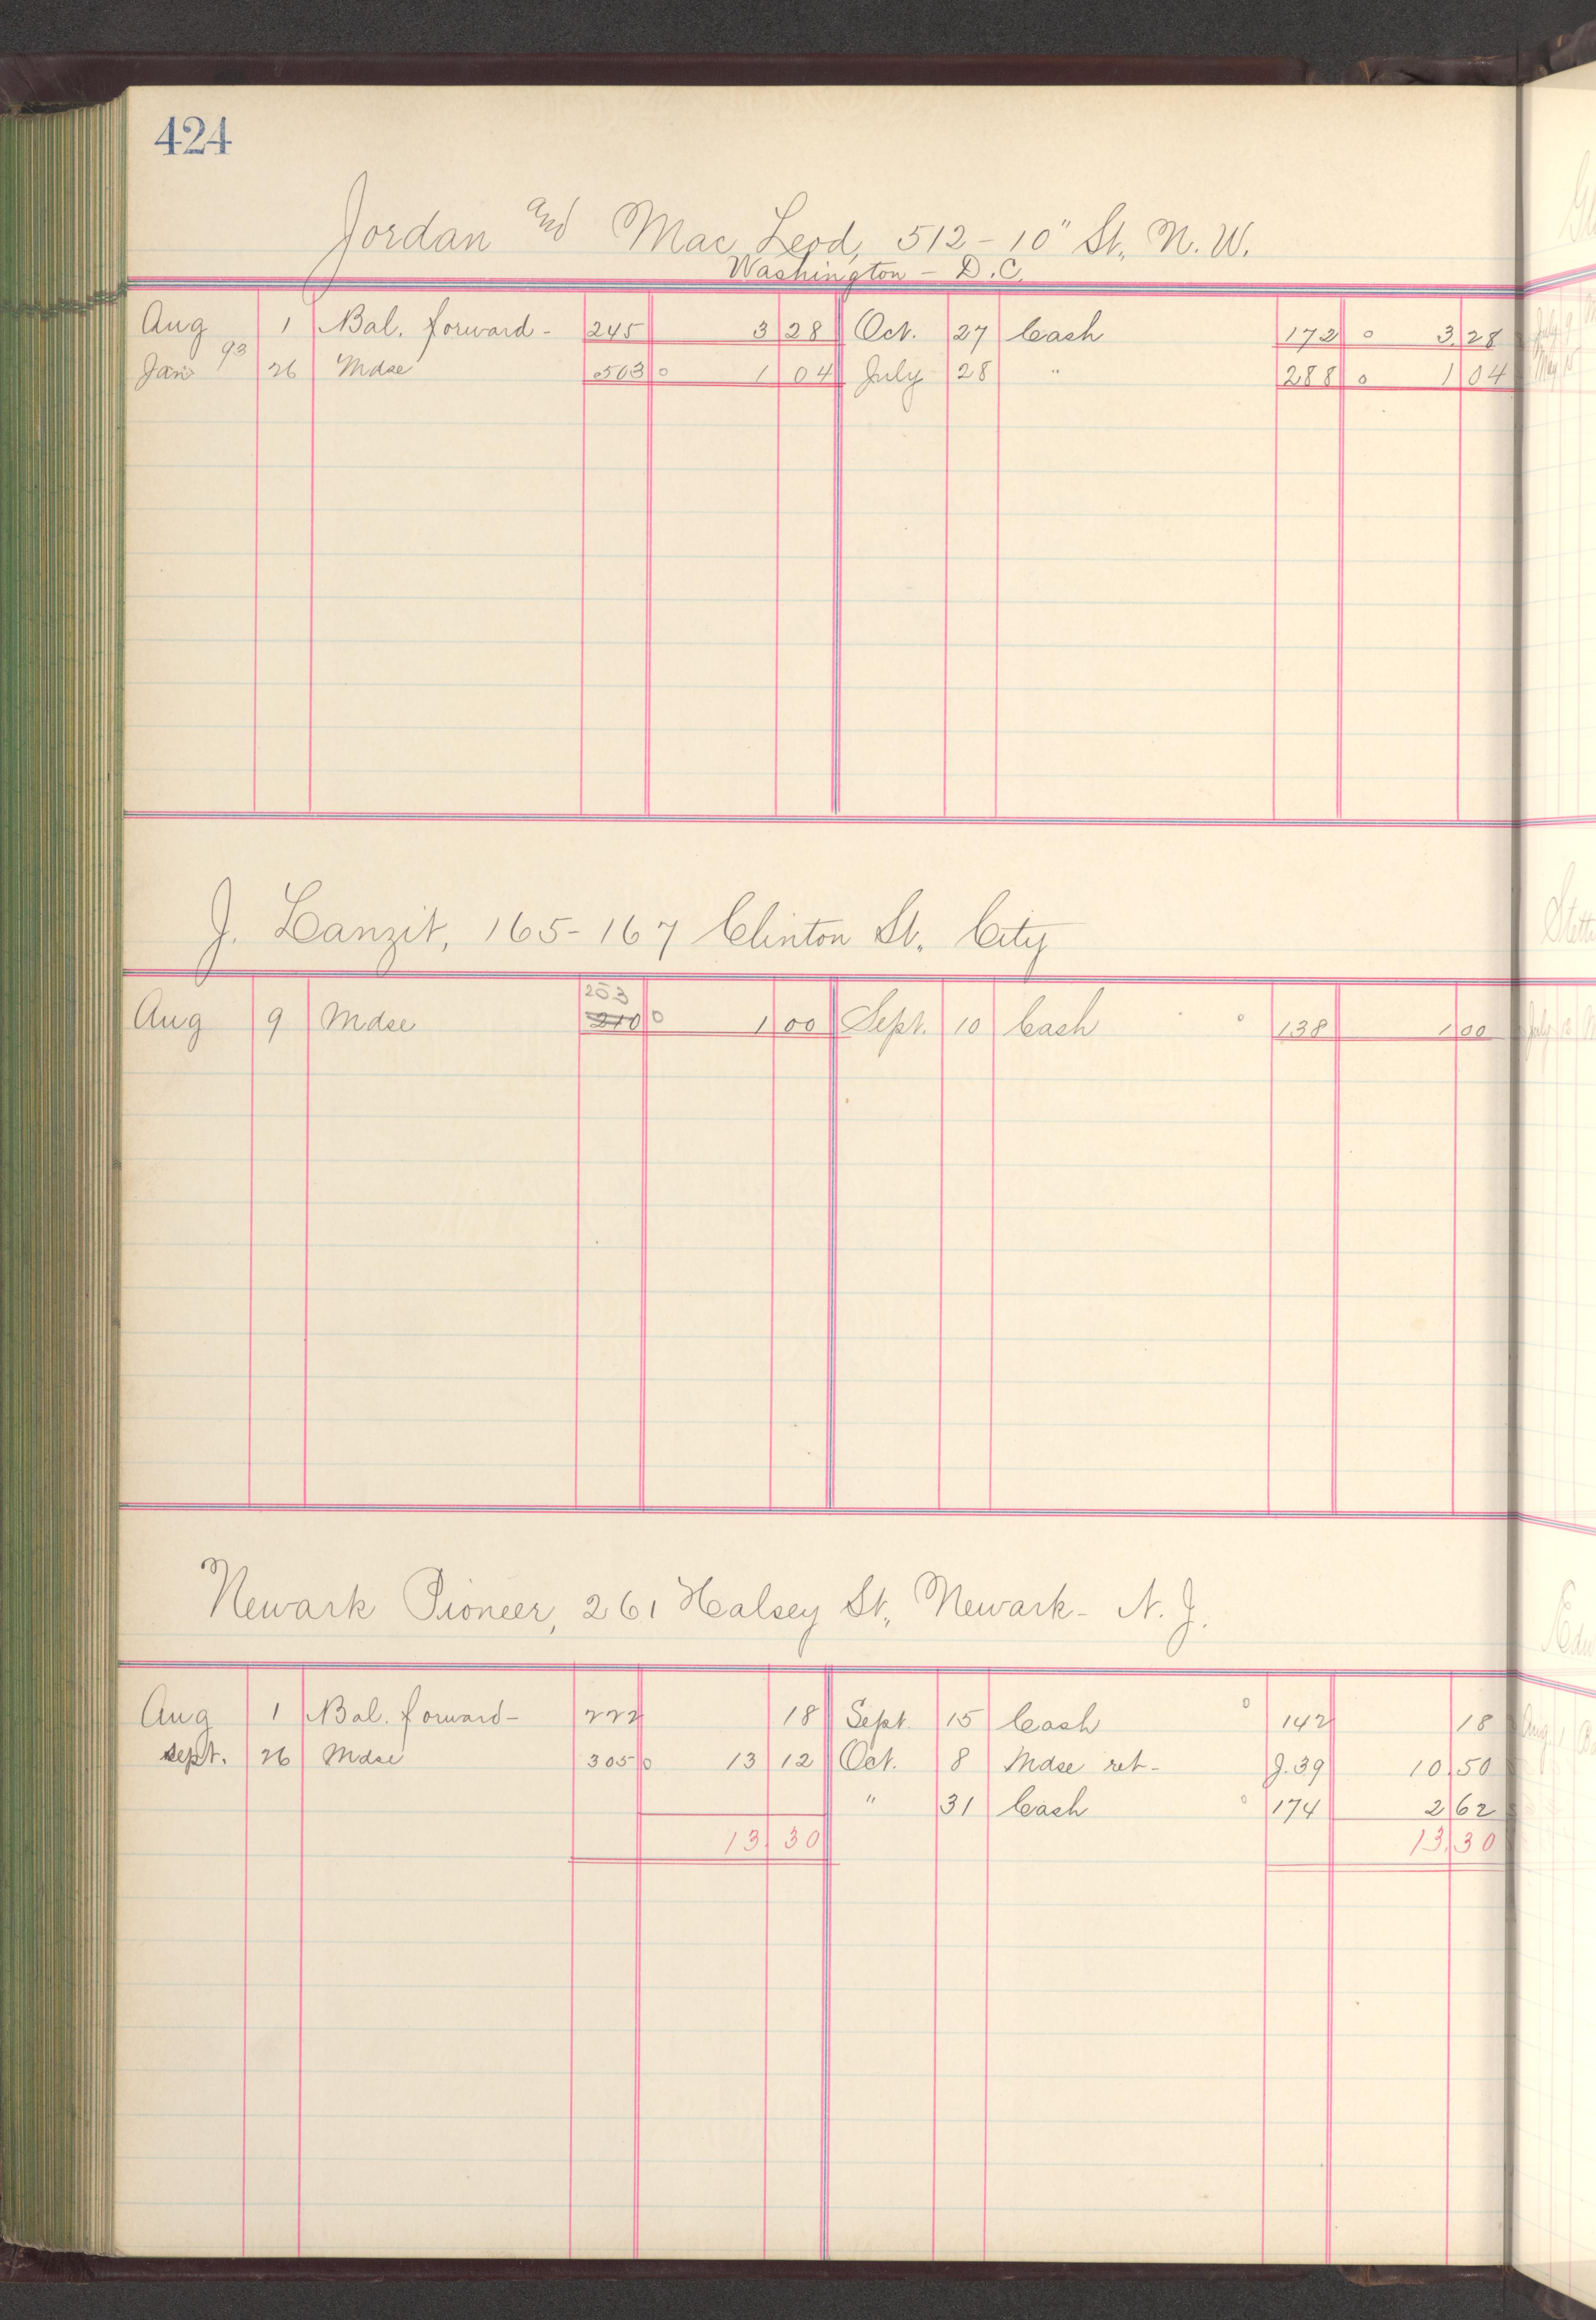 424
Jordan and Mac Leod, 512-10" St., N. W.
Washington - D.C.
Aug 1 Bal. forward - 245 3 28 Oct. 27 Cash 172 o 3 28
Jan 93 26 Mdse 503 o 1 04 July 28 " 288 o 1 04
J. Lanzit, 165-167 Clinton St. City
253
Aug 9 Mdse 210 o 1 00 Sept. 10 Cash o 138 1 00
Newark Pioneer, 261 Halsey St., Newark - N. J.
Aug 1 Bal. forward - 222 18 Sept. 15 Cash o 142 18
Sept. 26 Mdse 305 o 13 12 Oct. 8 Mdse ret - J. 39 10 50
" 31 Cash o 174 2 62
13 30 13 30